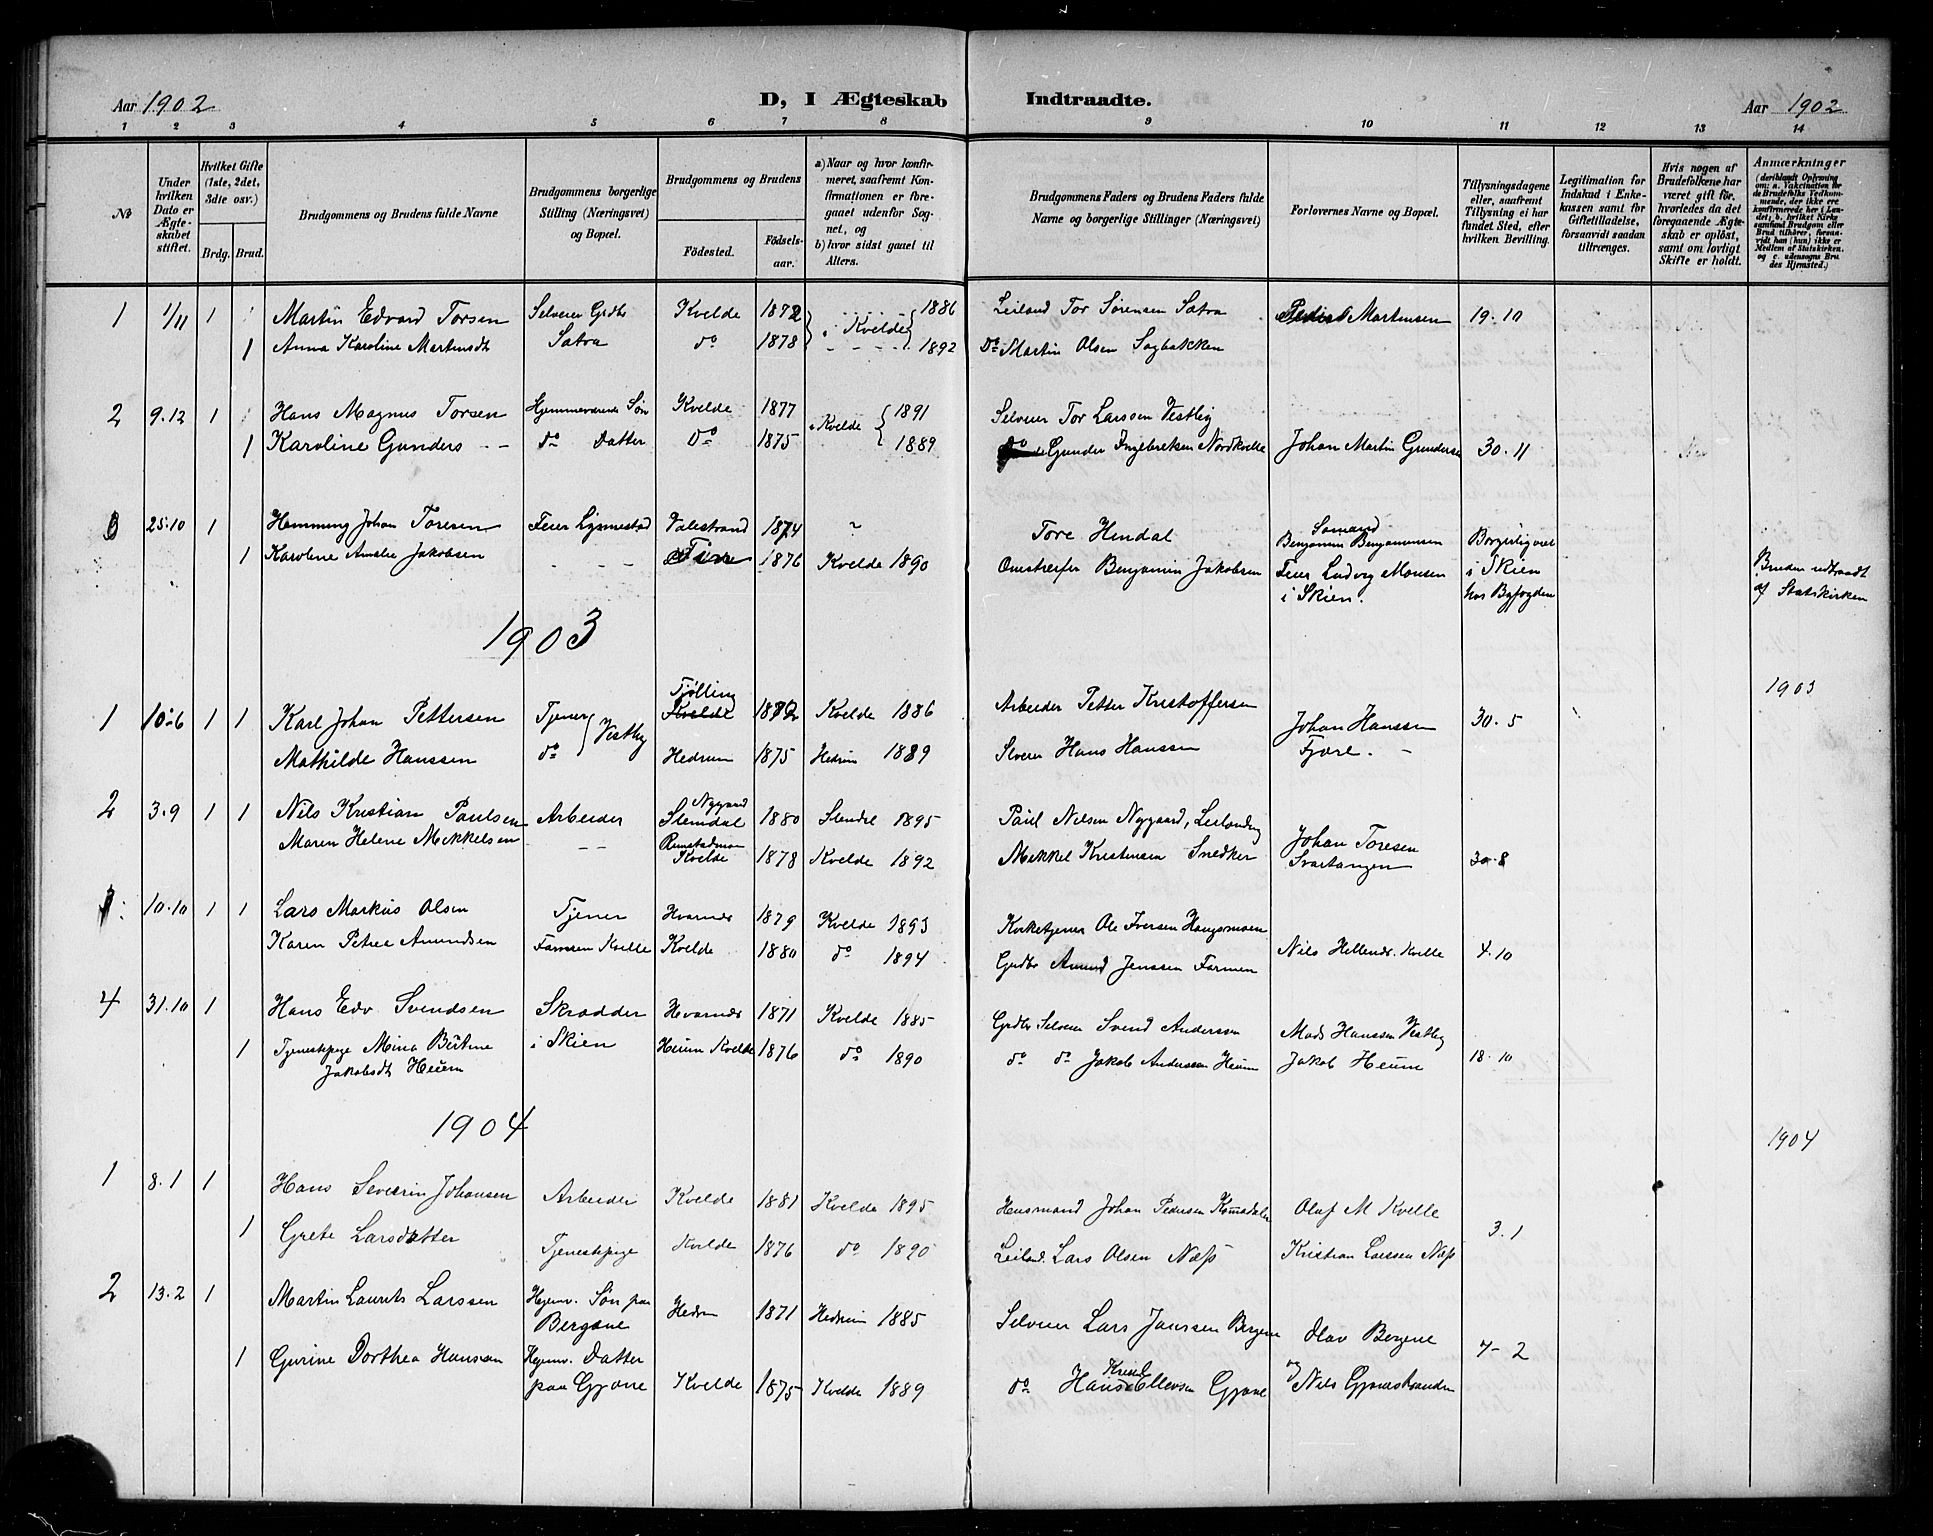 Aar 1902
D, I Ægteskab Indtraadte.
Aar 1902
1 2 3 4 5 6 7 8 9 10 11 12 13 14
No
Under hvilken Dato er Ægteskabet stiftet.
Hvilket Gifte (1ste, 2det, 3die osv.)
Brdg. Brud.
Brudgommens og Brudens fulde Navne
Brudgommens borgerlige Stilling (Næringsvei) og Bopæl.
Brudgommens og Brudens
Födested.
Födselsaar.
a) Naar og hvor konfirmeret, saafremt Konfirmationen er foregaaet udenfor Sognet, og
b) hvor sidst gaaet til Alters.
Brudgommens Faders og Brudens Faders fulde Navne og borgerlige Stillinger (Næringsvei)
Forlovernes Navne og Bopæl.
Tillysningsdagene eller, saafremt Tillysning ei har fundet Sted, efter hvilken Bevilling.
Legitimation for Indskud i Enkekassen samt for Giftetilladelse, forsaavidt saadan tiltrænges.
Hvis nogen af Brudefolkene har været gift för, hvorledes da det foregaaende Ægteskab er oplöst, samt om lovligt Skifte er holdt.
Anmærkninger (deriblandt Oplysning om: a. Vakcination for de Brudefolks Vedkommende, der ikke ere konfirmerede her i Landet; b. hvilket Kirkesamfund Brudgom eller Brud tilhörer, forsaavidt han (hun) ikke er Medlem af Statskirken, og c. udensogns Brudes Hjemsted.)
1 1/11 1 Martin Edvard Torsen Selveier Grdbr Kvelde 1872 1886 Leiland Tor Sørensen Satra Martensen 19-10
1 Anna Karoline Martinsdt Satra do 1878 i Kvelde 1892 Do Martin Olsen Sagbakken
2 9.12 1 Hans Magnus Torsen Hjemmeværende Søn Kvelde 1877 i Kvelde 1891 Selveier Tor Larssen Vestby
1 Karoline Gunders - - do Datter Do 1875 1889 do Gunder Ingebretsen Nordkvelle Johan Martin Gundersen 30.11
3 25.10 1 Hemming Johan Toresen Feier Valestrand 1874 Tore Hendal Benjamin Benjaminsen Borgerlig viet
1 Karoline Amalie Jakobsen - - 1876 Kvelde 1890 Benjamin Jakobsen Feier Ludvig Monsen i Skien Bruden udtraadt
i Skien. hos Byfogden af Statskirken
1903
1903
1 10.6 1 1 Karl Johan Pettersen Tjener Vestby Tjølling Kvelde 1872 Kvelde 1886 Arbeider Petter Kristoffersen Johan Hanssen 30.5
Mathilde Hanssen do Hedrum 1875 Hedrum 1889 Hans Hanssen Fjære. -
2 3.9 1 1 Nils Kristian Paulsen Arbeider Nygaard Slemdal 1880 Slemdal 1895 Paul Nilsen Nygaard, Johan Toresen
Maren Helene Mikkelsen - - Kvelde 1878 Kvelde 1892 Mikkel Kristensen Snedker Svartangen 30.8
10.10 1 1 Lars Markus Olsen Tjener Hvarnes 1879 Kvelde 1893 Kirketjener Ole Iversen Haugsmoen
Karen Petrea Amundsen Farmen Kvelle Kvelde 1880 do 1894 Grdbr Amund Jenssen Farmen Nils Kvelle 4.10
4 31.10 1 Hans Edv Svendsen Skrædder Hvarnes 1871 Kvelde 1885 Grdbr Selveier Svend Anderssen Mads Hanssen Vestby
1 Tjenestepige Mina Bertine i Skien Heum Kvelde 1876 do 1890 do do Jakob Anderssen Heum Jakob Heum 18.10
Jakobsdt Heum
1904
1904
1 8.1 1 Hans Severin Johansen Arbeider Kvelde 1881 Kvelde 1895 Husmand Johan Pedersen Olaf M Kvelle
1 Grete Larsdatter Tjenestepige Kvelde 1876 do 1890 Leiland. Lars Olsen Næss Kristian Larssen Næss 3.1
2 13.2 1 Martin Laurits Larssen Hjemv. Søn paa Bergene Hedrum 1871 Hedrum 1885 Selveier Lars Janssen Bergene Olav Bergene
1 Gurine Dorthea Hansen Hjemv. Datter paa Gjone Kvelde 1875 Kvelde 1889 do Hans Ellevsen Gjone og Nils Gjonestranden 7-2